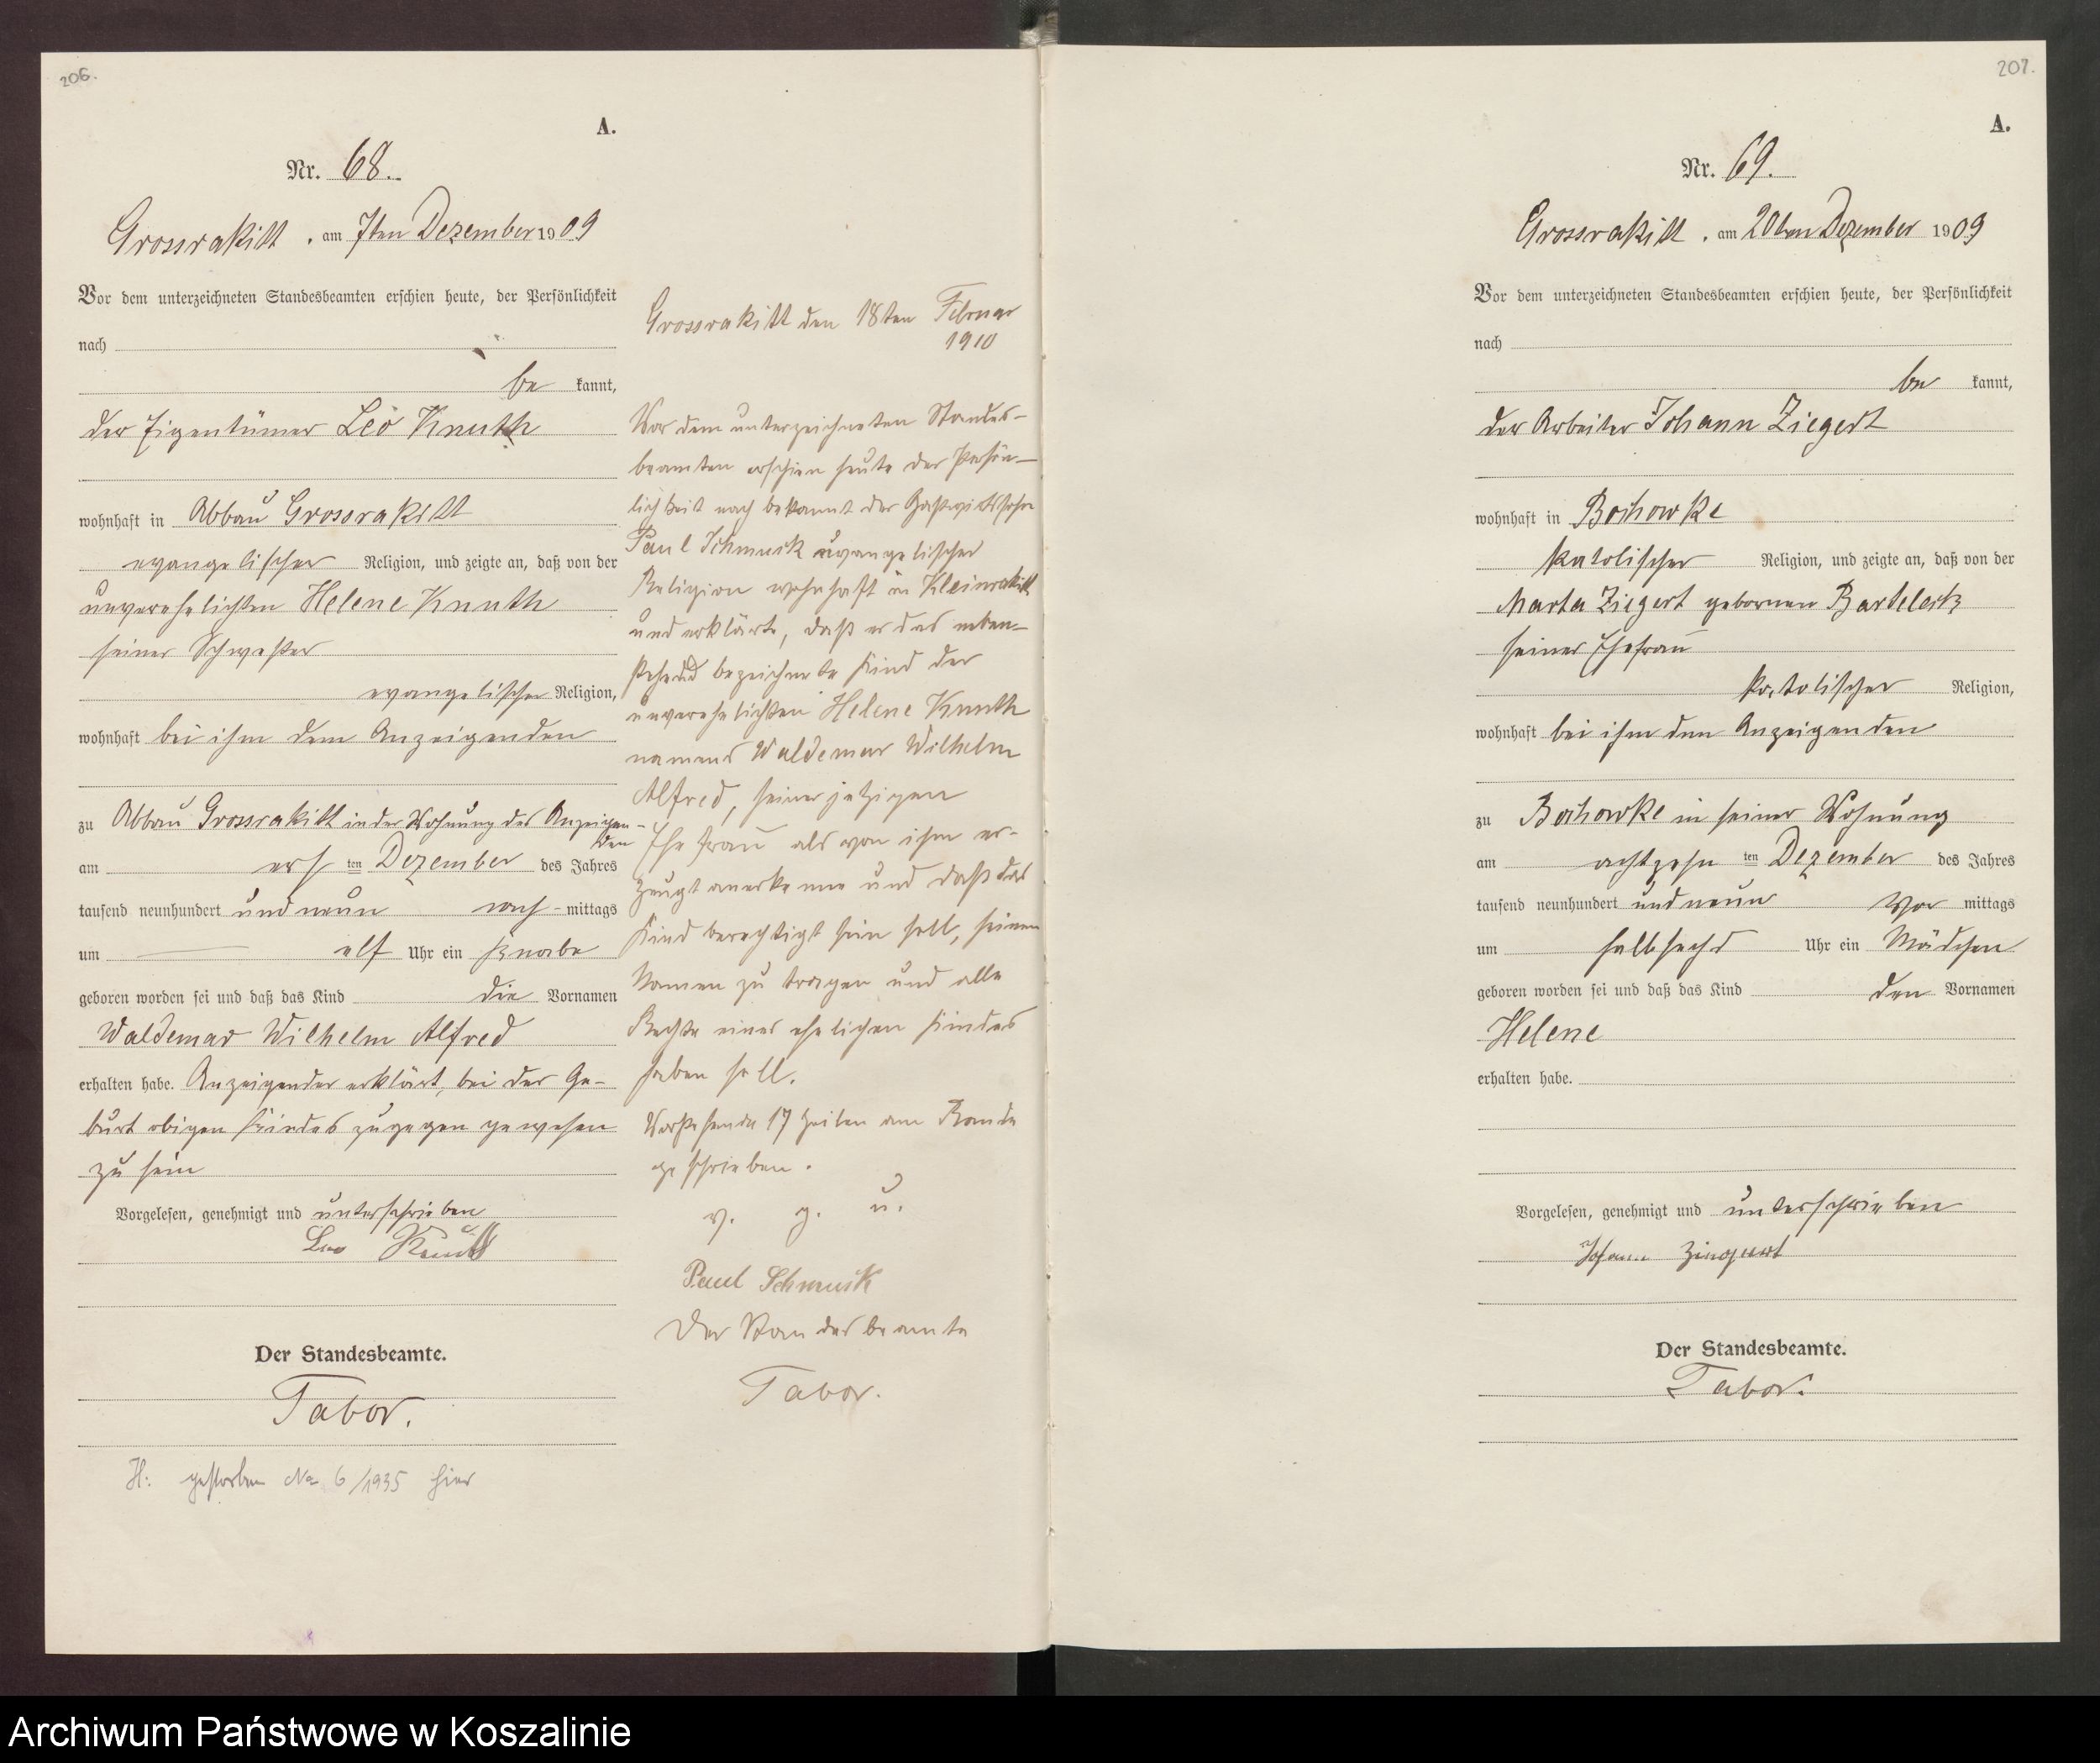 206.
A.
Nr. 68.
Grossrakitt, am 7ten Dezember 1909
Vor dem unterzeichneten Standesbeamten erschien heute, der Persönlichkeit
nach
be kannt,
der Eigentümer Leo Knuth
wohnhaft in Abbau Grossrakitt
evangelischer Religion, und zeigte an, daß von der
unverehelichten Helene Knuth
seiner Schwester
evangelischer Religion,
wohnhaft bei ihm dem Anzeigenden
zu Abbau Grossrakitt in der Wohnung des Anzeigen-
den
am ersten Dezember des Jahres
tausend neunhundert und neun nach-mittags
um elf Uhr ein Knabe
geboren worden sei und daß das Kind die Vornamen
Waldemar Wilhelm Alfred
erhalten habe. Anzeigender erklärt, bei der Ge-
burt obigen Kindes zugegen gewesen
zu sein
Vorgelesen, genehmigt und unterschrieben
Leo Knuth
Der Standesbeamte.
Tabor.
H: gestorben No 6/1935 hier
Grossrakitt den 18ten Februar
1910
Vor dem unterzeichneten Standes-
beamten erschien heute der Persön-
lichkeit nach bekannt der Gastwirtssohn
Paul Schmuck evangelischer
Religion wohnhaft in Kleinrakitt
und erklärte, daß er das neben-
stehend bezeichnete Kind der
unverehelichten Helene Knuth
namens Waldemar Wilhelm
Alfred, seiner jetzigen
Ehefrau als von ihm er-
zeugt anerkenne und daß das
Kind berechtigt sein soll, seinen
Namen zu tragen und alle
Rechte eines ehelichen Kindes
haben soll.
Vorstehende 17 Zeilen am Rande
geschrieben.
v. g. u.
Paul Schmuck
Der Standesbeamte
Tabor.
207.
A.
Nr. 69.
Grossrakitt, am 20ten Dezember 1909
Vor dem unterzeichneten Standesbeamten erschien heute, der Persönlichkeit
nach
be kannt,
der Arbeiter Johann Ziegert
wohnhaft in Bochowke
katolischer Religion, und zeigte an, daß von der
Marta Ziegert gebornen
seiner Ehefrau
katolischer Religion,
wohnhaft bei ihm dem Anzeigenden
zu Bochowke in seiner Wohnung
am achtzehnten Dezember des Jahres
tausend neunhundert und neun Vor mittags
um halb sechs Uhr ein Mädchen
geboren worden sei und daß das Kind den Vornamen
Helene
erhalten habe.
Vorgelesen, genehmigt und unterschrieben
Johann
Der Standesbeamte.
Tabor.
Archiwum Państwowe w Koszalinie